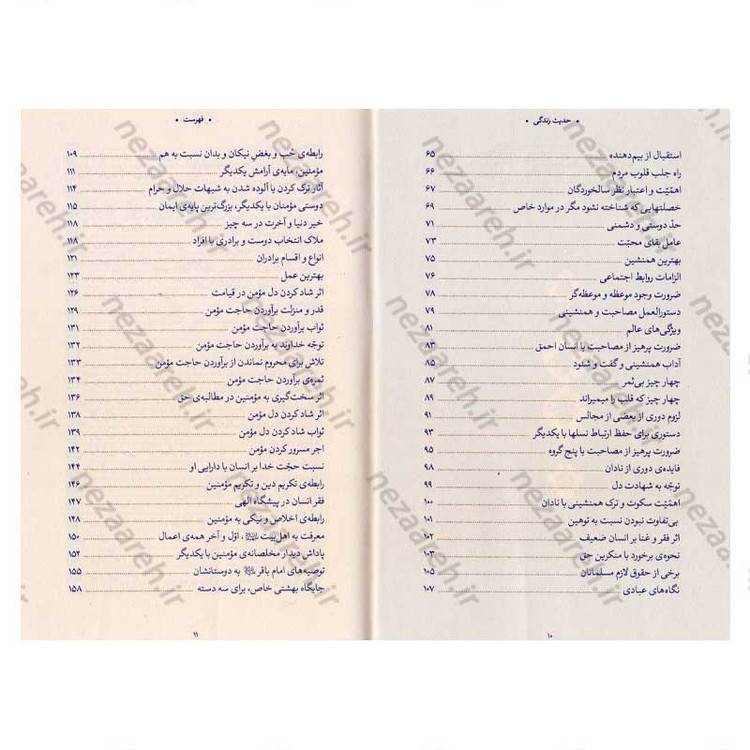 • حدیث زندگی •
استقبال از بیم‌دهنده ۶۵
راه جلب قلوب مردم ۶۶
اهمّیّت و اعتبار نظر سالخوردگان ۶۷
خصلتهایی که شناخته نشود مگر در موارد خاص ۶۹
حدّ دوستی و دشمنی ۷۱
عامل بقای محبّت ۷۳
بهترین همنشین ۷۵
الزامات روابط اجتماعی ۷۶
ضرورت وجود موعظه و موعظه‌گر ۷۸
دستورالعمل مصاحبت و همنشینی ۷۹
ویژگی‌های عالم ۸۱
ضرورت پرهیز از مصاحبت با انسان احمق ۸۳
آداب همنشینی و گفت و شنود ۸۵
چهار چیز بی‌ثمر ۸۷
چهار چیز که قلب را میمیراند ۸۹
لزوم دوری از بعضی از مجالس ۹۱
دستوری برای حفظ ارتباط نسلها با یکدیگر ۹۳
ضرورت پرهیز از مصاحبت با پنج گروه ۹۵
فایده‌ی دوری از نادان ۹۸
توجّه به شهادت دل ۹۹
اهمّیّت سکوت و ترک همنشینی با نادان ۱۰۰
بی‌تفاوت نبودن نسبت به توهین ۱۰۱
اثر فقر و غنا بر انسان ضعیف ۱۰۲
نحوه‌ی برخورد با منکرین حق ۱۰۳
برخی از حقوق لازم مسلمانان ۱۰۵
نگاه‌های عبادی ۱۰۷
۱۰
• فهرست •
رابطه‌ی حُب و بغض نیکان و بدان نسبت به هم ۱۰۹
مؤمنین، مایه‌ی آرامش یکدیگر ۱۱۱
آثار ترک کردن یا آلوده شدن به شبهات حلال و حرام ۱۱۴
دوستی مؤمنان با یکدیگر، بزرگ‌ترین پایه‌ی ایمان ۱۱۵
خیر دنیا و آخرت در سه چیز ۱۱۸
ملاک انتخاب دوست و برادری با افراد ۱۱۸
انواع و اقسام برادران ۱۲۱
بهترین عمل ۱۲۳
اثر شاد کردن دل مؤمن در قیامت ۱۲۶
قدر و منزلت برآوردن حاجت مؤمن ۱۲۹
ثواب برآوردن حاجت مؤمن ۱۳۱
توجّه خداوند به برآوردن حاجت مؤمن ۱۳۲
تلاش برای محروم نماندن از برآوردن حاجت مؤمن ۱۳۳
ثمره‌ی برآوردن حاجت مؤمن ۱۳۴
اثر سخت‌گیری به مؤمنین در مطالبه‌ی حق ۱۳۶
اثر شاد کردن دل مؤمن ۱۳۸
ثواب شاد کردن دل مؤمن ۱۳۹
اجر مسرور کردن مؤمن ۱۴۲
نسبت حجّت خدا بر انسان با دارایی او ۱۴۴
رابطه‌ی تکریم دین و تکریم مؤمنین ۱۴۶
فقر انسان در پیشگاه الهی ۱۴۷
رابطه‌ی اخلاص و نیکی به مؤمنین ۱۴۸
معرفت به اهل‌بیت، اوّل و آخر همه‌ی اعمال ۱۵۰
پاداش دیدار مخلصانه‌ی مؤمنین با یکدیگر ۱۵۲
توصیه‌های امام باقر به دوستانشان ۱۵۵
جایگاه بهشتی خاص، برای سه دسته ۱۵۸
۱۱
nezaareh.ir